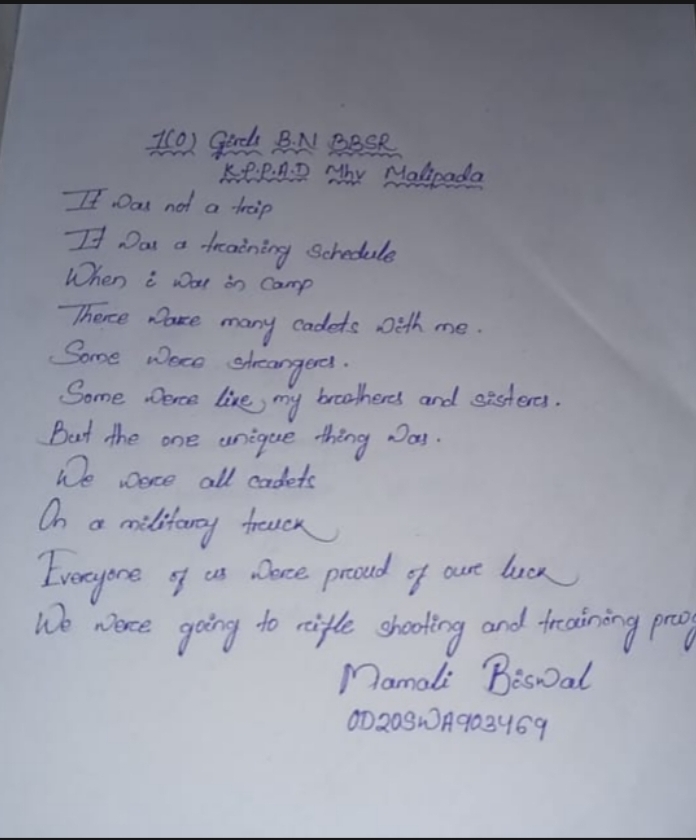 1(O) Girls B.N BBSR
K.P.P.A.D Mhv Malipada
It was not a trip
It was a training schedule
When i was in camp
There ware many cadets with me.
Some were strangers.
Some were like my brothers and sisters.
But the one unique thing was.
We were all cadets
On a military truck
Everyone of us were proud of our luck
We were going to rifle shooting and training prog
Mamali Biswal
OD20SWA903469